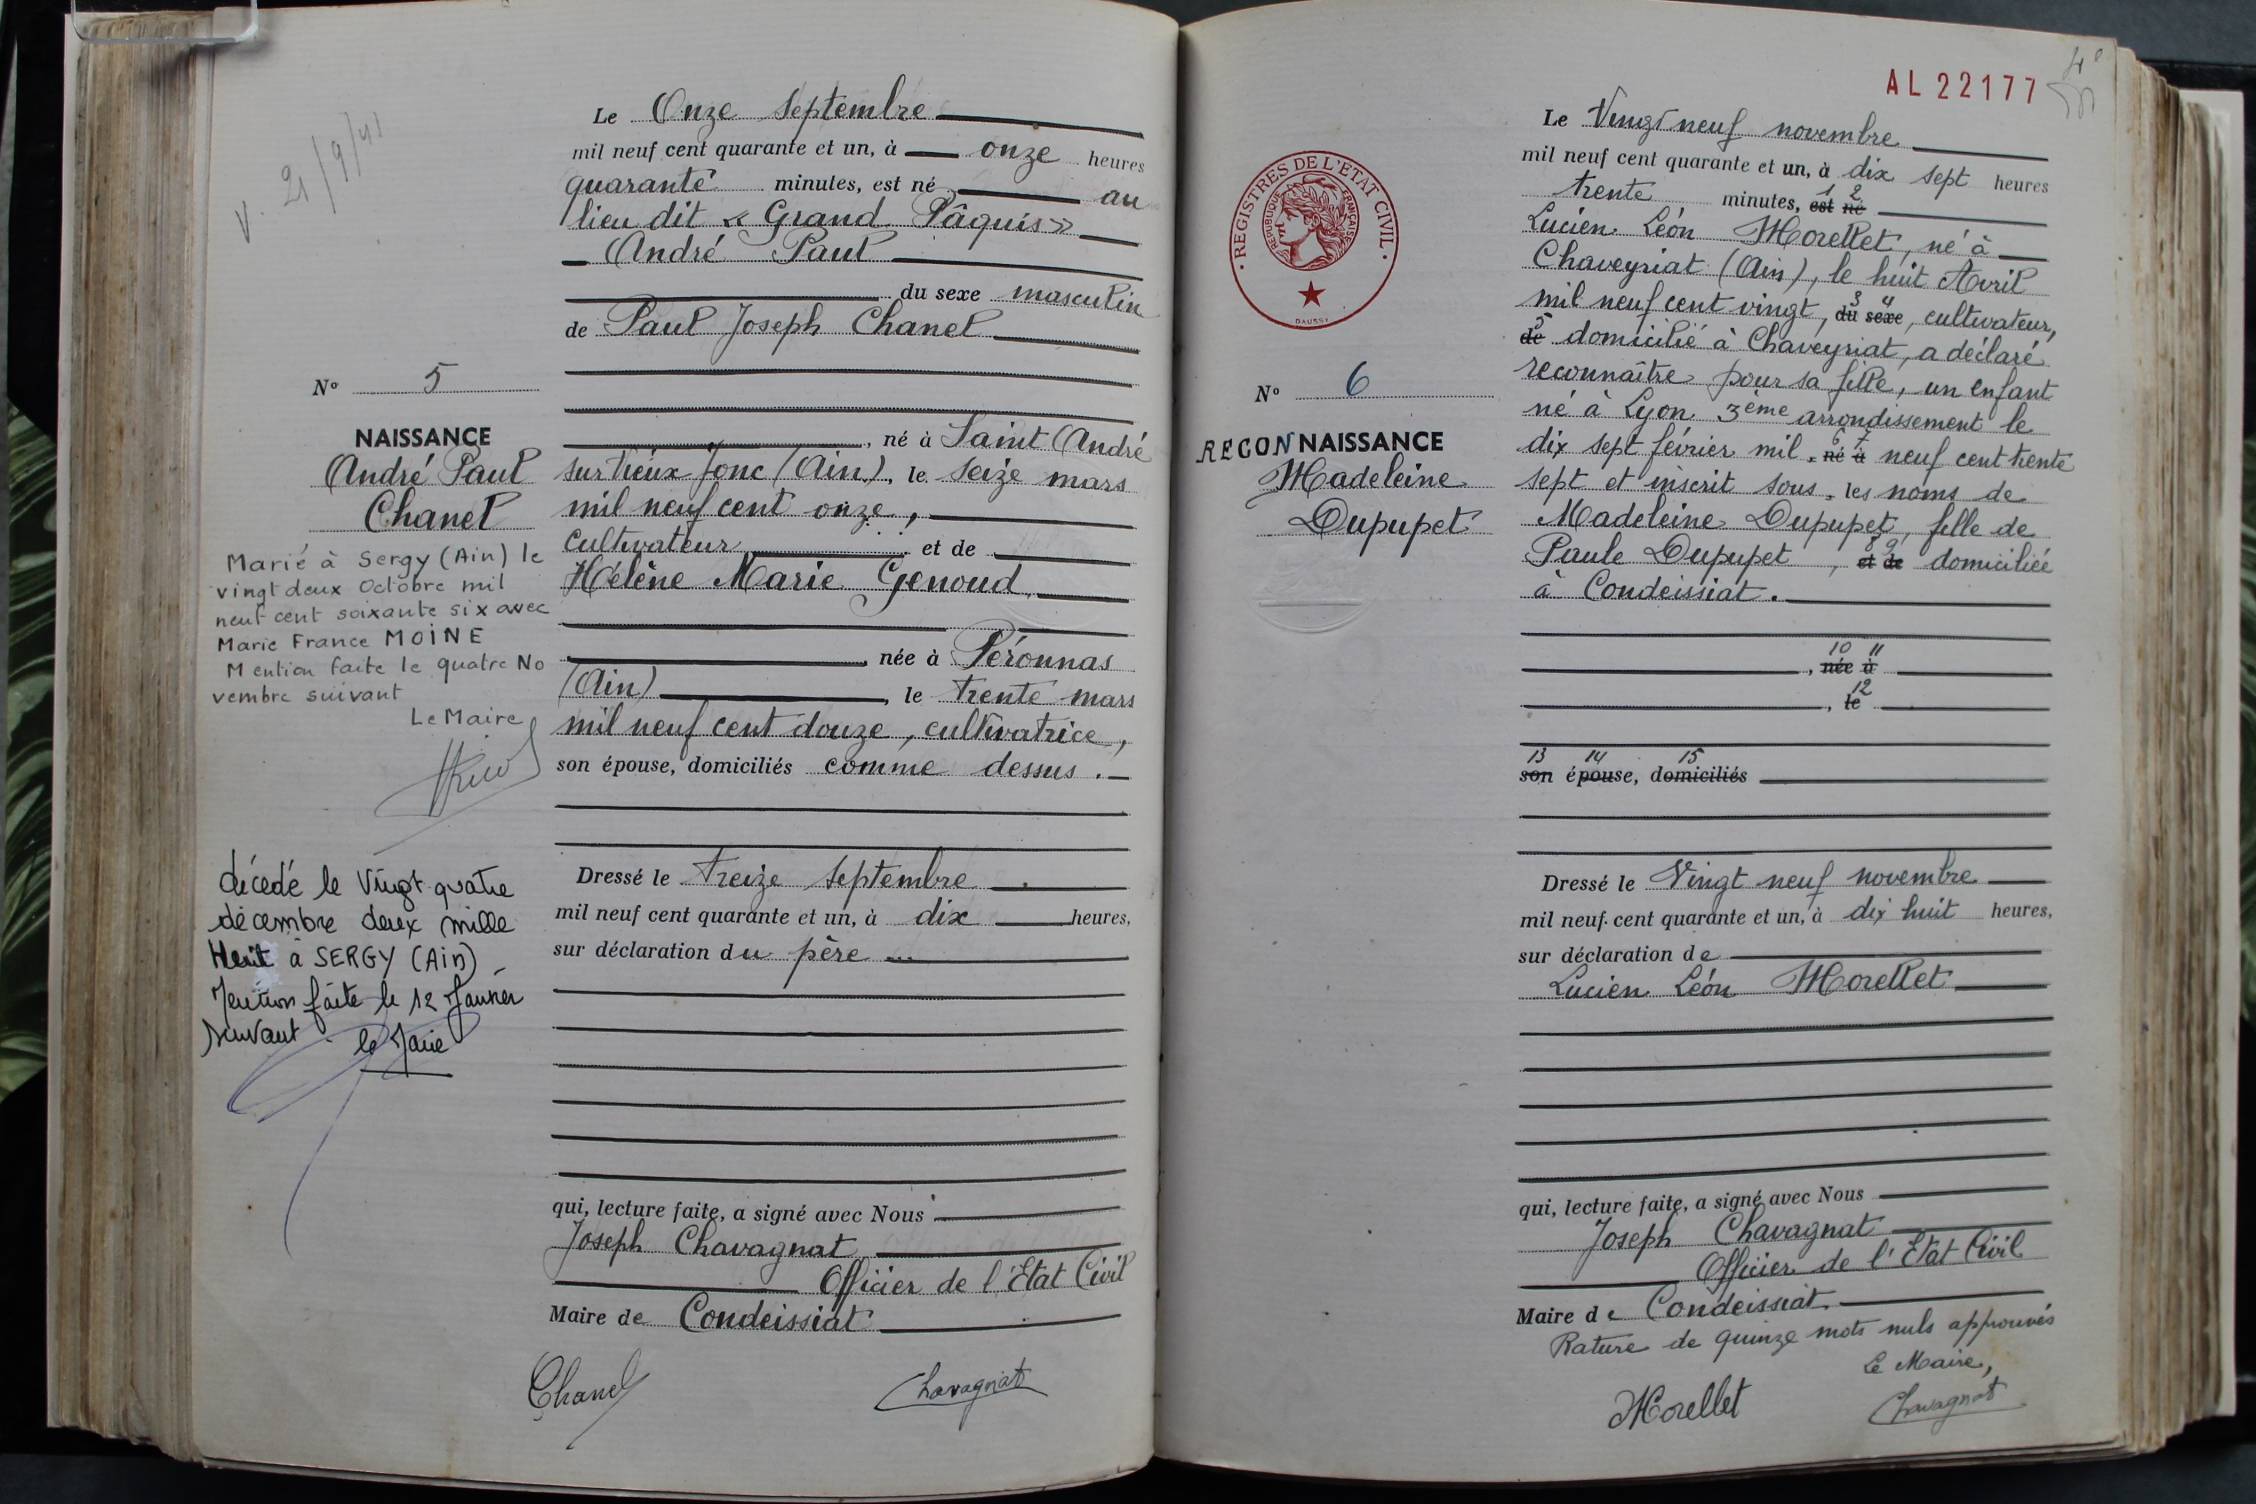 V. 21/9/41
Le Onze septembre
mil neuf cent quarante et un, à onze heures
quarante minutes, est né au
lieu dit « Grand Pâquis »
André Paul
du sexe masculin
de Paul Joseph Chanel
N° 5
NAISSANCE
André Paul
Chanel
, né à Saint André
sur Vieux Jonc (Ain), le seize mars
mil neuf cent onze,
cultivateur et de
Hélène Marie Genoud,
, née à Péronnas
(Ain), le trente mars
mil neuf cent douze, cultivatrice,
son épouse, domiciliés comme dessus.
Marié à Sergy (Ain) le
vingt deux Octobre mil
neuf cent soixante six avec
Marie France MOINE
Mention faite le quatre No
vembre suivant
Le Maire
décédé le Vingt quatre
décembre deux mille
Huit à SERGY (Ain)
Mention faite le 12 Janvier
suivant
le Maire
Dressé le treize septembre
mil neuf cent quarante et un, à dix heures,
sur déclaration du père
qui, lecture faite, a signé avec Nous
Joseph Chavagnat
Officier de l'Etat Civil
Maire de Condeissiat
Chanel Chavagnat
AL 22177
REGISTRES DE L'ETAT CIVIL
REPUBLIQUE FRANÇAISE
DAUSSY
N° 6
RECONNAISSANCE
Madeleine
Dupupet
Le Vingt neuf novembre
mil neuf cent quarante et un, à dix sept heures
trente minutes, 1 est 2 né
Lucien Léon Morellet, né à
Chaveyriat (Ain), le huit Avril
mil neuf cent vingt, 3 du 4 sexe, cultivateur,
5 de domicilié à Chaveyriat, a déclaré
reconnaître pour sa fille, un enfant
né à Lyon 3ème arrondissement le
dix sept février mil, 6 né 7 à neuf cent trente
sept et inscrit sous, les noms de
Madeleine Dupupet, fille de
Paule Dupupet, 8 et 9 de domiciliée
à Condeissiat.
, 10 née 11 à
, 12 le
13 son 14 épouse, 15 domiciliés
Dressé le Vingt neuf novembre
mil neuf cent quarante et un, à dix huit heures,
sur déclaration de
Lucien Léon Morellet
qui, lecture faite, a signé avec Nous
Joseph Chavagnat
Officier de l'Etat Civil
Maire de Condeissiat.
Rature de quinze mots nuls approuvés
Le Maire,
Morellet Chavagnat